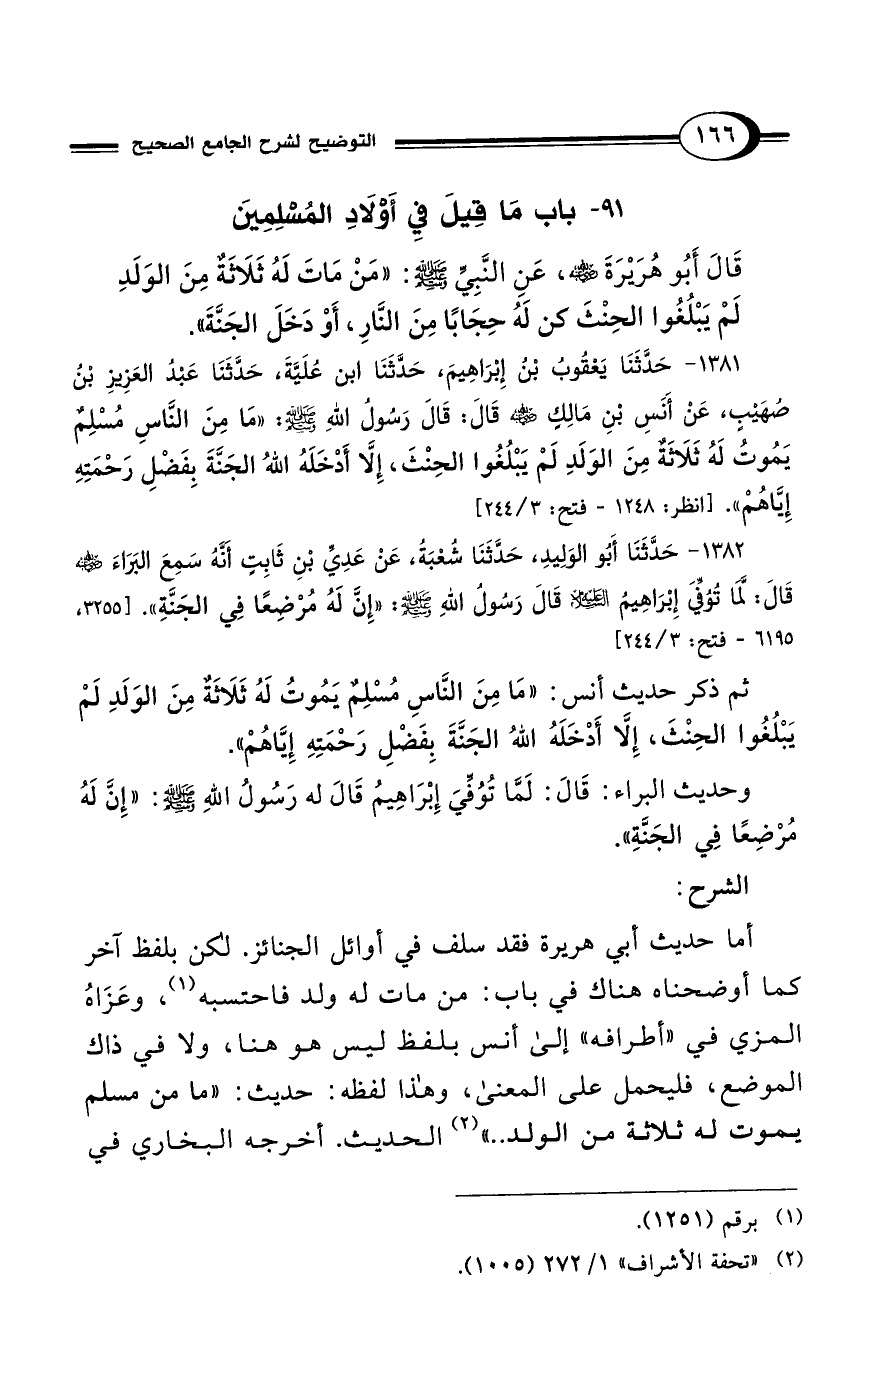 ١٦٦ التوضيح لشرح الجامع الصحيح
٩١- باب مَا قِيلَ فِي أَوْلَادِ المُسْلِمِينَ
قَالَ أَبُو هُرَيْرَةَ ﵁، عَنِ النَّبِيِّ ﷺ: «مَنْ مَاتَ لَهُ ثَلَاثَةٌ مِنَ الوَلَدِ
لَمْ يَبْلُغُوا الحِنْثَ كن لَهُ حِجَابًا مِنَ النَّارِ، أَوْ دَخَلَ الجَنَّةَ».
١٣٨١- حَدَّثَنَا يَعْقُوبُ بْنُ إِبْرَاهِيمَ، حَدَّثَنَا ابن عُلَيَّةَ، حَدَّثَنَا عَبْدُ العَزِيزِ بْنُ
صُهَيْبٍ، عَنْ أَنَسِ بْنِ مَالِكٍ ﵁ قَالَ: قَالَ رَسُولُ اللهِ ﷺ: «مَا مِنَ النَّاسِ مُسْلِمٌ
يَمُوتُ لَهُ ثَلَاثَةٌ مِنَ الوَلَدِ لَمْ يَبْلُغُوا الحِنْثَ، إِلَّا أَدْخَلَهُ اللهُ الجَنَّةَ بِفَضْلِ رَحْمَتِهِ
إِيَّاهُمْ». [انظر: ١٢٤٨ - فتح: ٣/٢٤٤]
١٣٨٢- حَدَّثَنَا أَبُو الوَلِيدِ، حَدَّثَنَا شُعْبَةُ، عَنْ عَدِيِّ بْنِ ثَابِتٍ أَنَّهُ سَمِعَ البَرَاءَ ﵁
قَالَ: لَمَّا تُوُفِّيَ إِبْرَاهِيمُ ﵇ قَالَ رَسُولُ اللهِ ﷺ: «إِنَّ لَهُ مُرْضِعًا فِي الجَنَّةِ». [٣٢٥٥،
٦١٩٥ - فتح: ٣/٢٤٤]
ثم ذكر حديث أنس: «مَا مِنَ النَّاسِ مُسْلِمٌ يَمُوتُ لَهُ ثَلَاثَةٌ مِنَ الوَلَدِ لَمْ
يَبْلُغُوا الحِنْثَ، إِلَّا أَدْخَلَهُ اللهُ الجَنَّةَ بِفَضْلِ رَحْمَتِهِ إِيَّاهُمْ».
وحديث البراء: قَالَ: لَمَّا تُوُفِّيَ إِبْرَاهِيمُ قَالَ له رَسُولُ اللهِ ﷺ: «إِنَّ لَهُ
مُرْضِعًا فِي الجَنَّةِ».
الشرح:
أما حديث أبي هريرة فقد سلف في أوائل الجنائز. لكن بلفظ آخر
كما أوضحناه هناك في باب: من مات له ولد فاحتسبه(١)، وعَزَاهُ
المزي في «أطرافه» إلىٰ أنس بلفظ ليس هو هنا، ولا في ذاك
الموضع، فليحمل على المعنىٰ، وهٰذا لفظه: حديث: «ما من مسلم
يموت له ثلاثة من الولد..»(٢) الحديث. أخرجه البخاري في
(١) برقم (١٢٥١).
(٢) «تحفة الأشراف» ١/ ٢٧٢ (١٠٠٥).